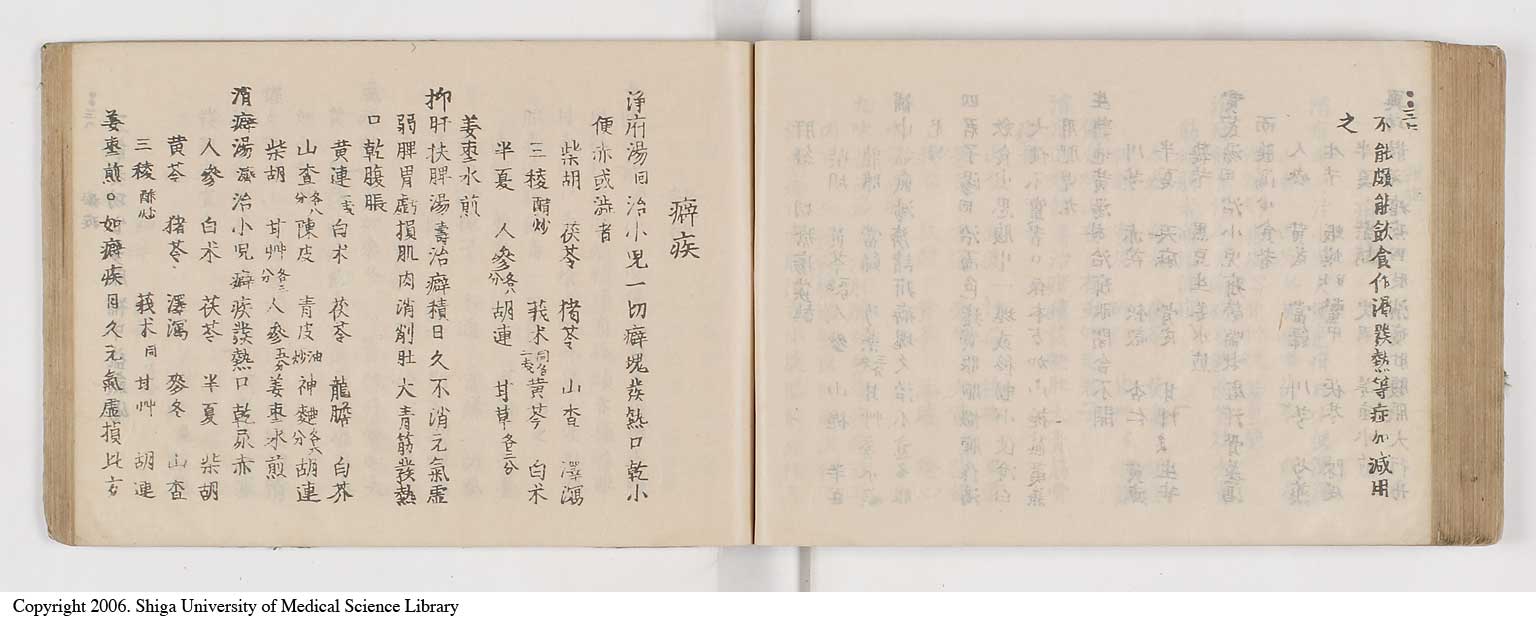 不能頗能飲食作渇發熱等症加减用
之
癖疾
浄府湯回治小児一切癖塊發熱口乾小
便赤或澁者
柴胡 茯苓 猪苓 山查 澤瀉
三稜醋炒 莪术同各一戈 黄芩 白术
半夏 人參各八分 胡連 甘草各三分
姜枣水煎
抑肝扶脾湯壽治癖積日久不消元氣虚
弱脾胃虧損肌肉消削肚大青筋發熱
口乾腹脹
黄連一戈 白术 茯苓 龍膽 白芥
山查各八分 陳皮 青皮油炒 神麯各六分 胡連
柴胡 甘艸各三分 人參五分 姜枣水煎
消癖湯濟治小児癖疾發熱口乾尿赤
人參 白术 茯苓 半夏 柴胡
黄芩 猪苓 澤瀉 麥冬 山查
三稜醋炒 莪术同 甘艸 胡連
姜枣煎○如癖疾日久元氣虚損此方
Copyright 2006. Shiga University of Medical Science Library